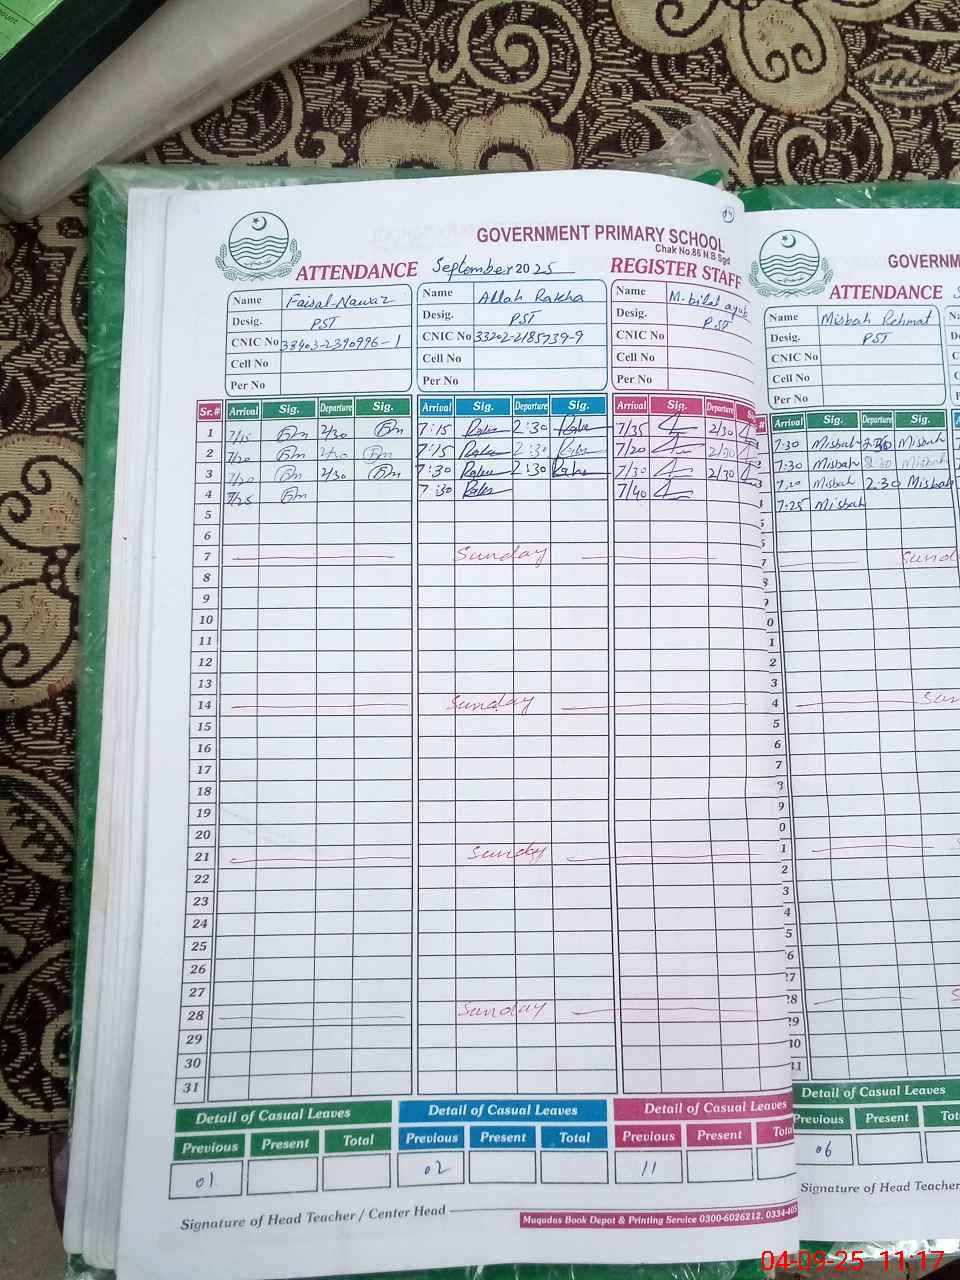 GOVERNMENT PRIMARY SCHOOL
Chak No.86 N.B Sgd
ATTENDANCE September 2025 REGISTER STAFF
Name Faisal Nawaz Name Allah Rakha Name M. bilal ayub
Desig. PST Desig. PST Desig. PST
CNIC No 38403-2390996-1 CNIC No 33202-2185739-9 CNIC No
Cell No Cell No Cell No
Per No Per No Per No
Sr.# Arrival Sig. Departure Sig. Arrival Sig. Departure Sig. Arrival Sig. Departure Sig.
1 7/15 2/30 7:15 2:30 7/35 2/30
2 7/20 2/30 7:15 2:30 7/20 2/30
3 7/20 2/30 7:30 2:30 7/30 2/30
4 7/25 7:30 7/40
5
6
7 Sunday
8
9
10
11
12
13
14 Sunday
15
16
17
18
19
20
21 Sunday
22
23
24
25
26
27
28 Sunday
29
30
31
Detail of Casual Leaves Detail of Casual Leaves Detail of Casual Leaves
Previous Present Total Previous Present Total Previous Present
01 02 11
Signature of Head Teacher / Center Head
Muqadas Book Depot & Printing Service 0300-6026212, 0334-405
GOVERNM
ATTENDANCE
Name Misbah Rehmat
Desig. PST
CNIC No
Cell No
Per No
Arrival Sig. Departure Sig.
7:30 Misbah 2:30 Misbah
7:30 Misbah 2:30 Misbah
7:20 Misbah 2:30 Misbah
7:25 Misbah
Detail of Casual Leaves
Previous Present
06
Signature of Head Teacher
04-09-25 11:17